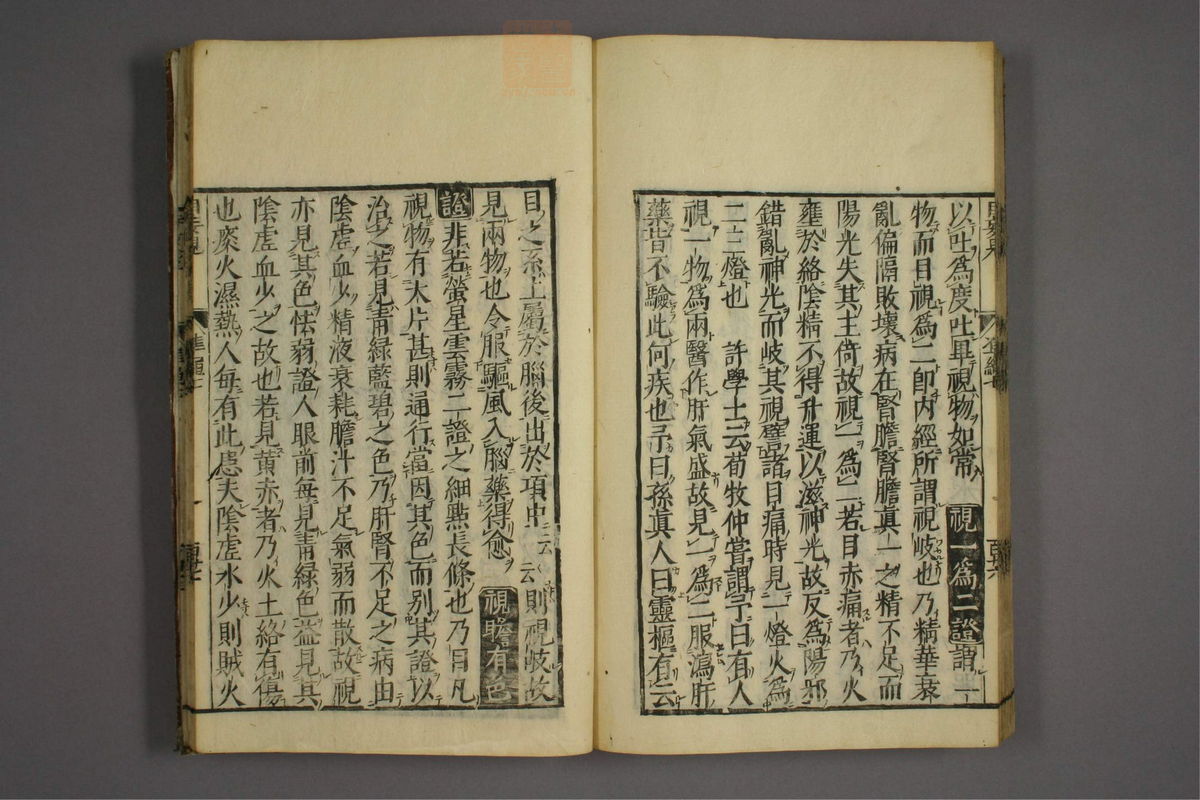 以吐爲度吐耳視物如常　視一爲二證　謂一
物而目視爲二卽内經所謂視岐也乃精華衰
亂偏隔敗壞病在腎膽腎膽眞一之精不足而
陽光失其主倚故視一爲二若目赤痛者乃火
壅於絡陰精不得升運以滋神光故反爲陽邪
錯亂神光而岐其視譬諸目痛時見一燈火爲
二三燈也　許學士云荀牧仲嘗謂予曰有人
視一物爲兩醫作肝氣盛故見一爲二服瀉肝
藥皆不驗此何疾也予曰孫眞人曰靈樞有云
目之系上屬於腦後出於項中云云則視岐故
見兩物也令服驅風入腦藥得愈　視瞻有色
證　非若螢星雲霧二證之細點長條也乃目凡
視物有大片甚則通行當因其色而別其證以
治之若見靑綠藍碧之色乃肝腎不足之病由
陰虛血少精液衰耗膽汁不足氣弱而散故視
亦見其色怯弱證人眼前每見靑綠色益見其
陰虛血少之故也若見黃赤者乃火土絡有傷
也痰火濕熱人每有此患夫陰虛水少則賊火